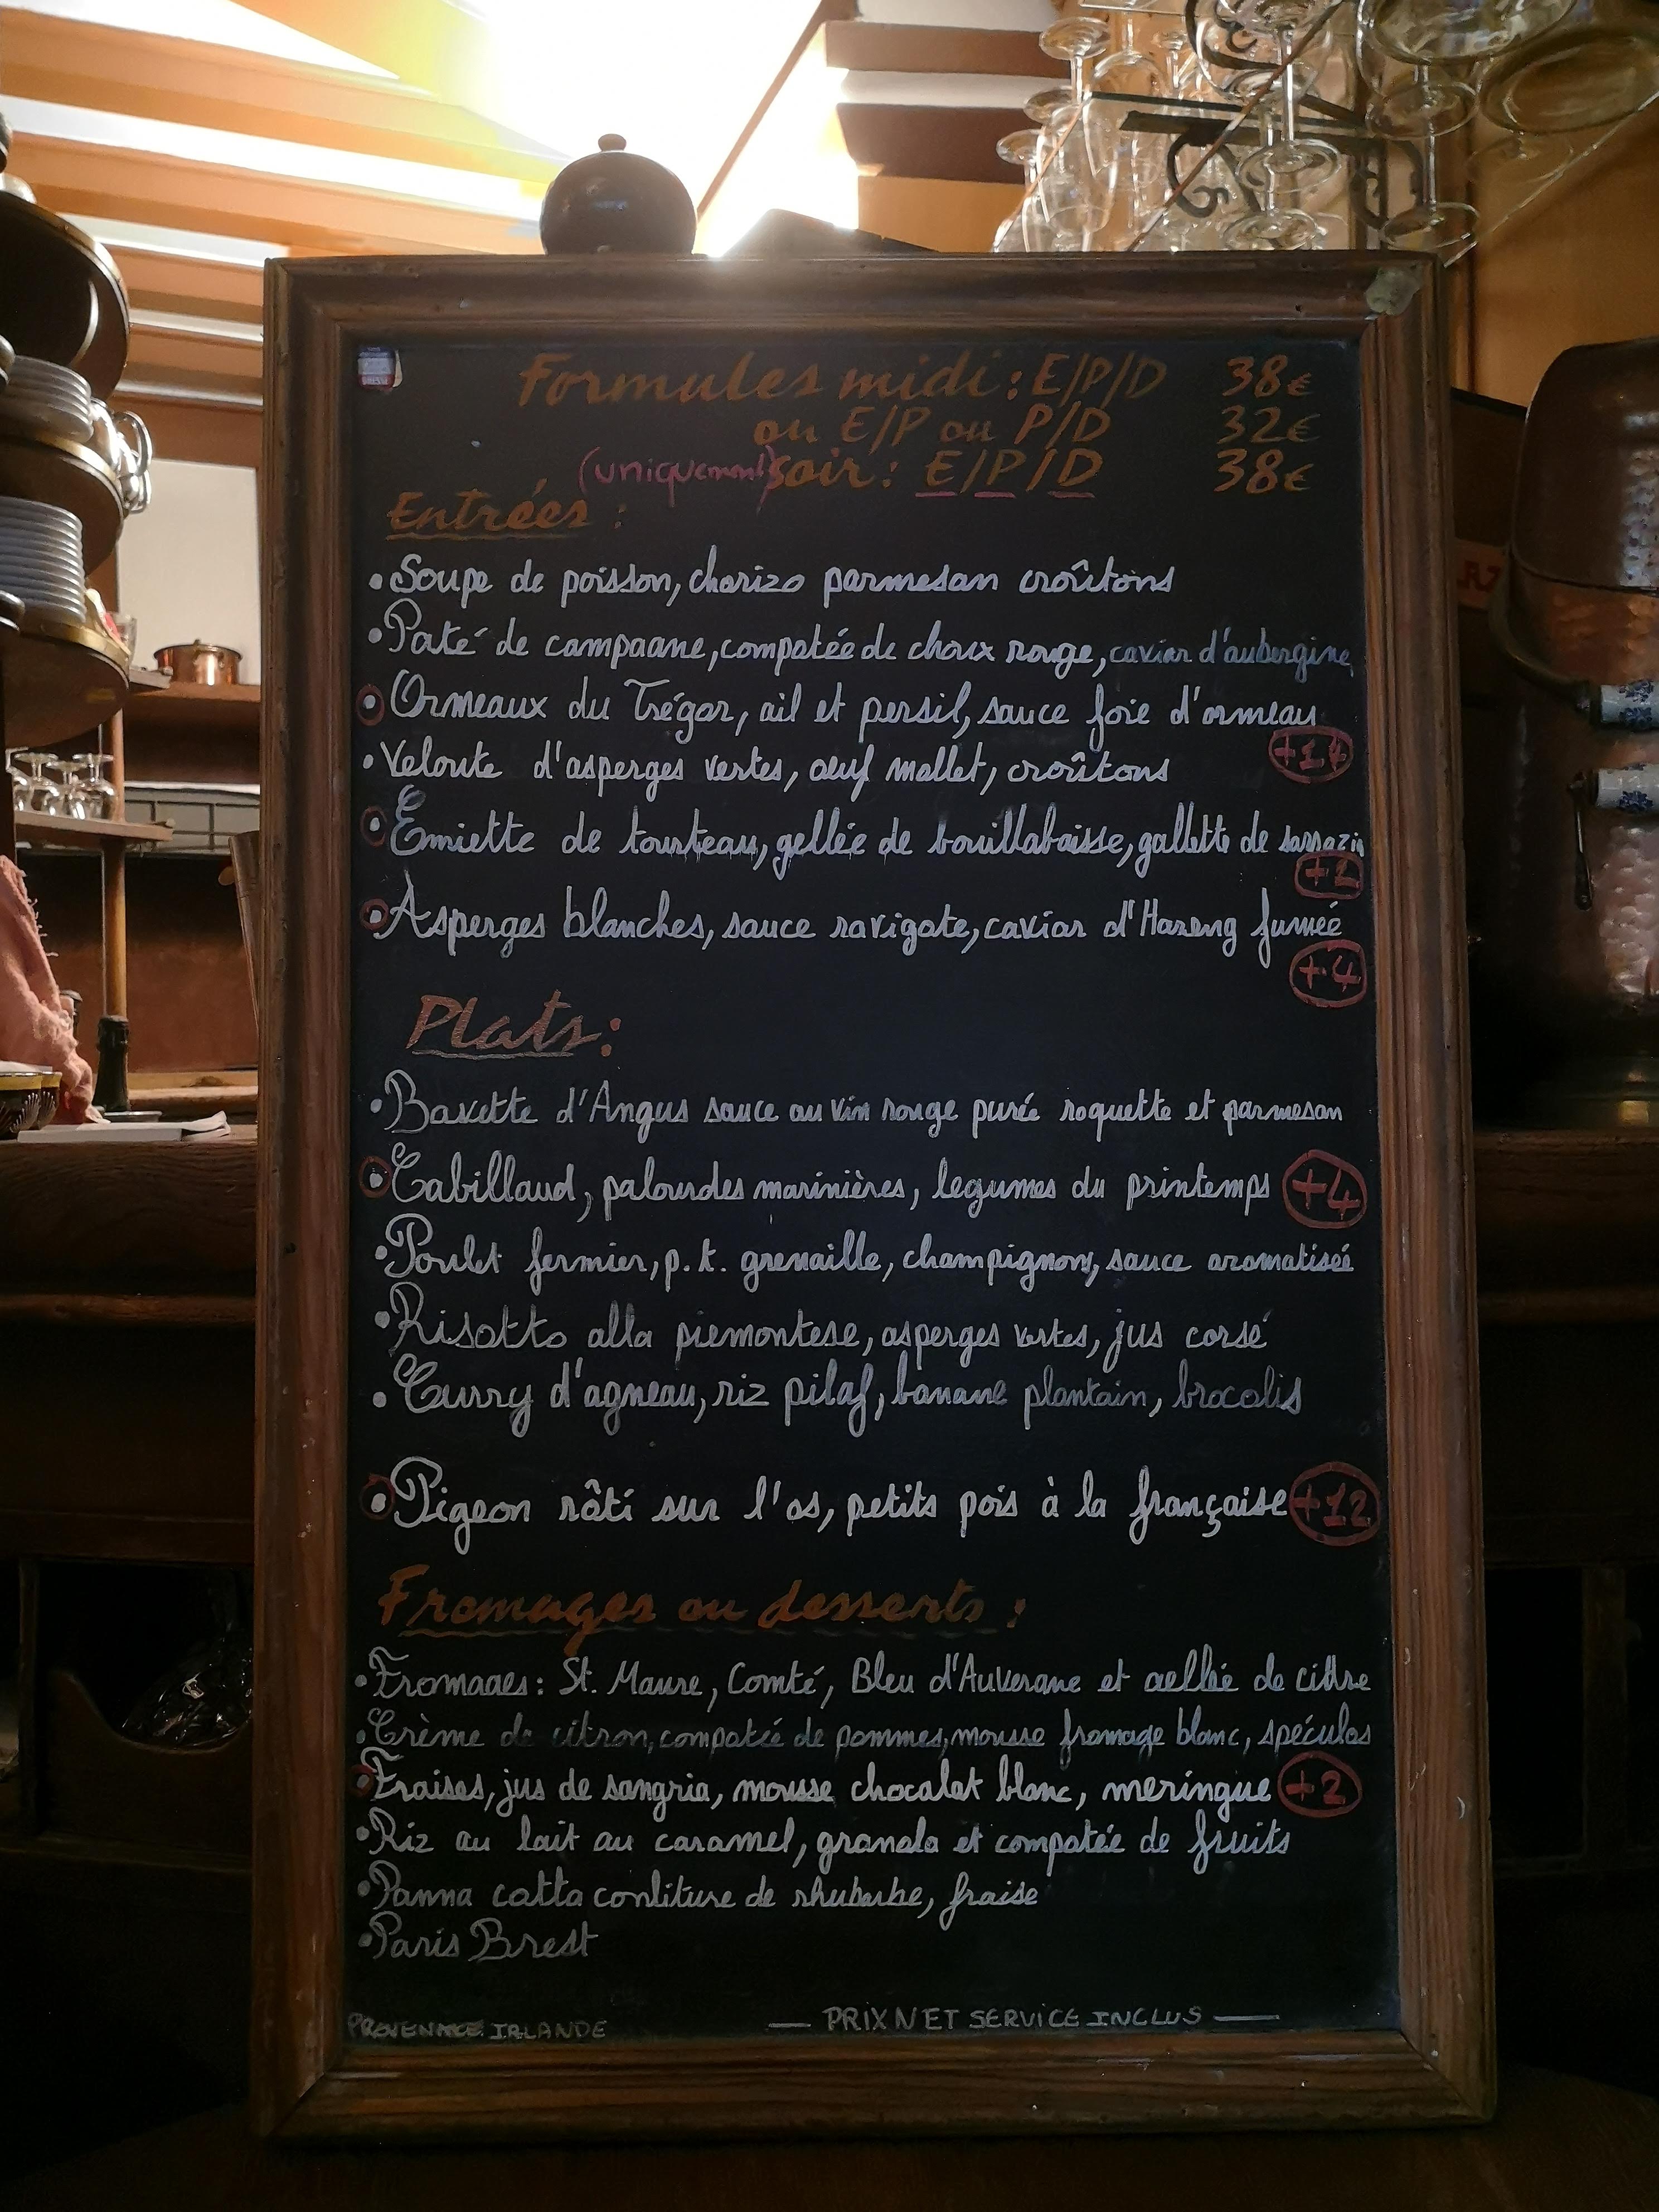 Formules midi : E/P/D 38€
ou E/P ou P/D 32€
(uniquement) soir : E/P/D 38€
Entrées :
• Soupe de poisson, chorizo parmesan croûtons
• Paté de campagne, compotée de choux rouge, caviar d'aubergine
• Ormeaux du Trégor, ail et persil, sauce foie d'ormeau
+14
• Veloute d'asperges vertes, œuf mollet, croûtons
• Emiette de tourteau, gellée de bouillabaisse, gallette de sarrazin
+2
• Asperges blanches, sauce ravigote, caviar d'Hareng fumée
+4
Plats :
• Bavette d'Angus sauce au vin rouge purée roquette et parmesan
• Cabillaud, palourdes marinières, legumes du printemps +4
• Poulet fermier, p.t. grenaille, champignons, sauce aromatiseé
• Risotto alla piemontese, asperges vertes, jus corsé
• Curry d'agneau, riz pilaf, banane plantain, brocolis
• Pigeon rôti sur l'os, petits pois à la française +12
Fromages ou desserts :
• Fromages : St. Maure, Comté, Bleu d'Auvergne et gellée de cidre
• Crème de citron, compotée de pommes, mousse fromage blanc, spéculos
• Fraises, jus de sangria, mousse chocolat blanc, meringue +2
• Riz au lait au caramel, granola et compotée de fruits
• Panna cotta confiture de rhubarbe, fraise
• Paris Brest
PROVENANCE IRLANDE — PRIX NET SERVICE INCLUS —